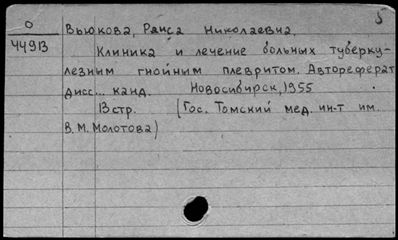 О
44913
Вьюкова, Раиса Николаевна.
Клиника и лечение больных туберку-
лезним гнойным плевритом. Автореферат
дисс... канд. Новосибирск, 1955
13 стр. (Гос. Томский мед. ин-т им.
В. М. Молотова)